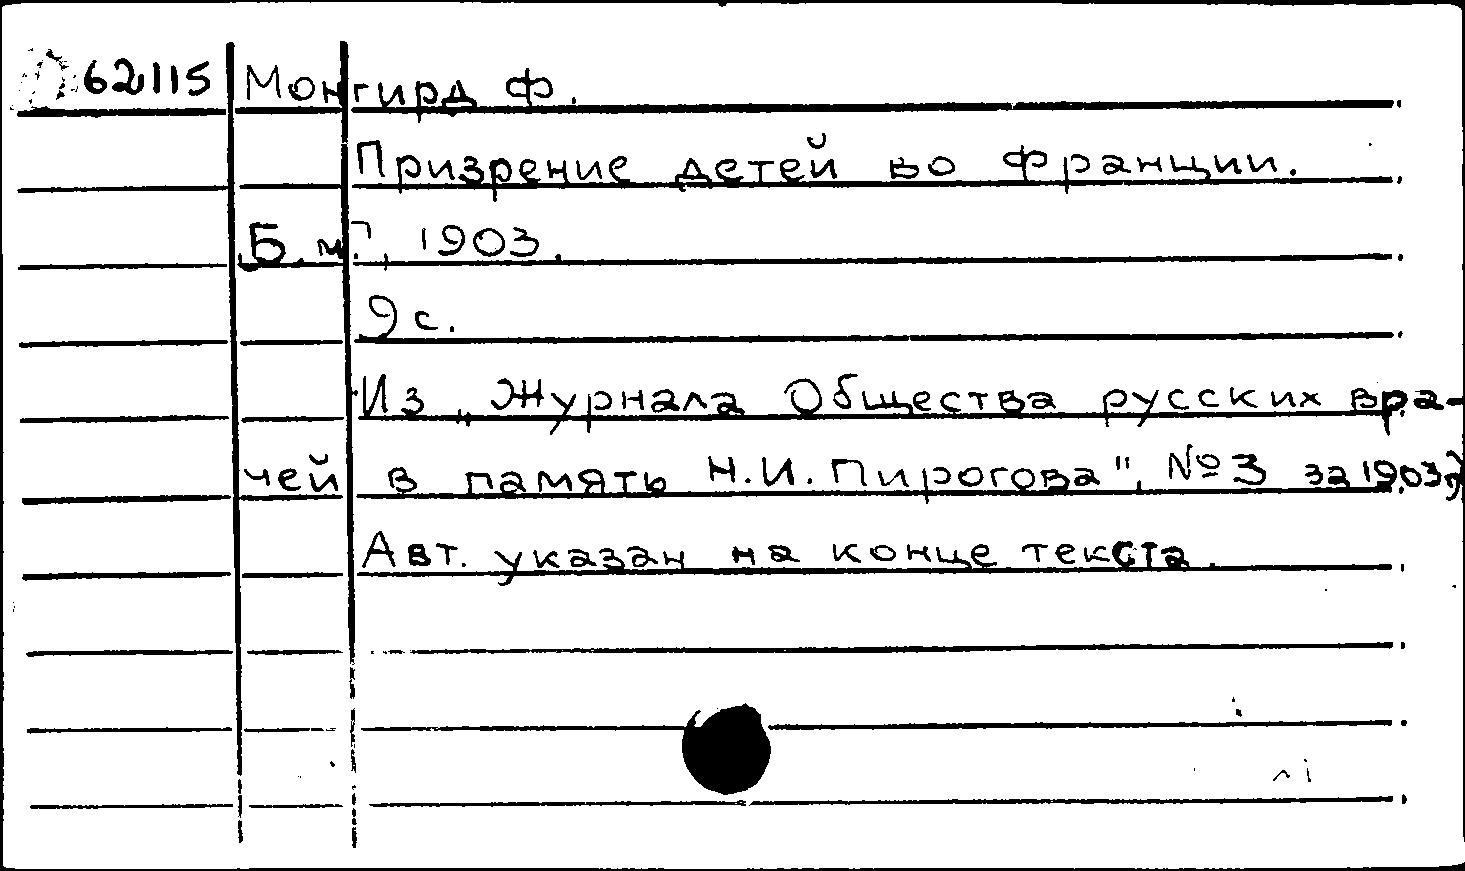 62115 Монгирд Ф.
Призрение детей во Франции.
Б.м., 1903.
9 с.
Из „Журнала Общества русских вра-
чей в память Н.И. Пирогова", № 3 за 1903г
Авт. указан на конце текста.